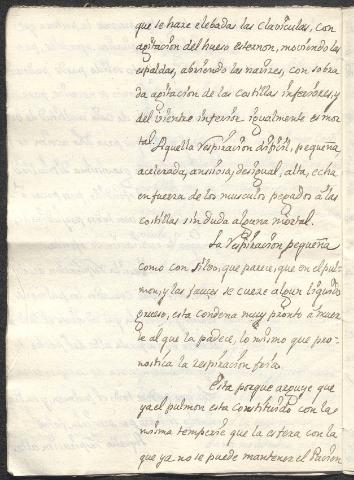 que se haze elebadas las claviculas, con
agitacion del hueso esternon, moviendo las
espaldas, abriendo las narizes, con sobra
da agitacion de las costillas inferiores, y
del vientre inferior. igualmente es mor
tal. Aquella respiracion dificil, pequeña,
acelerada, ansiosa, desigual, alta, echa
en fuerza de los musculos pegados â las
costillas sin duda alguna mortal.
La respiracion pequeña
como con silvo, que parece, que en el pul-
mon, y las fauces se cueze algun liquido
grueso, esta condena muy pronto â muer
te al que la padece, lo mismo que pro-
nostica la respiracion fria.
Esta porque arguye que
ya el pulmon esta constituido con la
misma temperie que la esfera con la
que ya no se puede mantener el